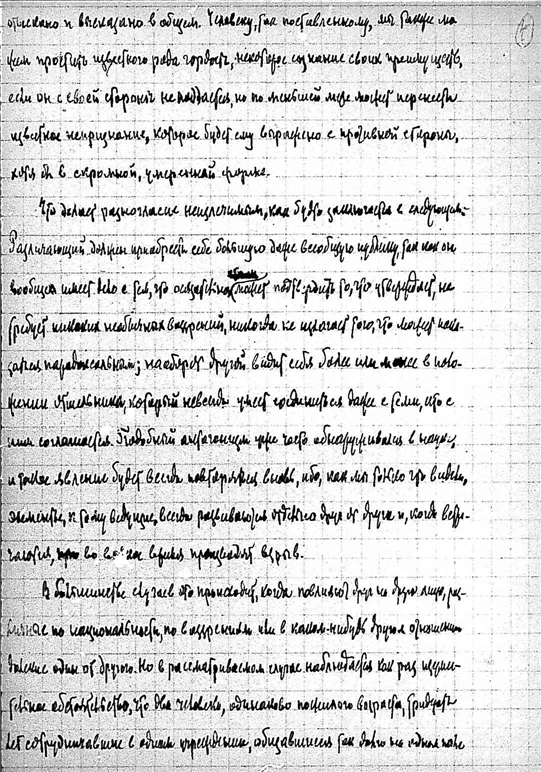 отыскано и высказано в общем. Человеку, так поставленному, мы также мо-
жем простить известного рода гордость, некоторое сознание своих преимуществ,
если он с своей стороны не поддается, но по меньшей мере может перенести
известное непризнание, которое будет ему выражено с противной стороны,
хотя бы в скромной, умеренной форме.
Что делает разногласие неизлечимым, как будто заключается в следующем:
Различающий должен приобрести себе большую даже всеобщую публику, так как он
вообще имеет дело с тем, что осязательно может подтвердить то, что утверждает, не
требует никаких необычных воззрений, никогда не излагает того, что может пока-
заться парадоксальным; наоборот другой видит себя более или менее в поло-
жении отшельника, который не всегда умеет соединиться даже с теми, кто с
ним соглашается. Подобный антагонизм уже часто обнаруживался в науке,
и такое явление будет всегда повторяться вновь, ибо, как мы только что видели,
элементы, к тому ведущие, всегда развиваются отдельно друг от друга и, когда встре-
чаются, во все времена производят взрыв.
В большинстве случаев это происходит, когда повлияют друг на друга лица, раз-
личные по национальности, по воззрениям или в каком-нибудь другом отношении
далекие один от другого. Но в рассматриваемом случае наблюдается как раз удиви-
тельное обстоятельство, что два человека, одинаково пожилого возраста, тридцать
лет сотрудничавшие в одном учреждении, подвизавшиеся так долго на одном поле